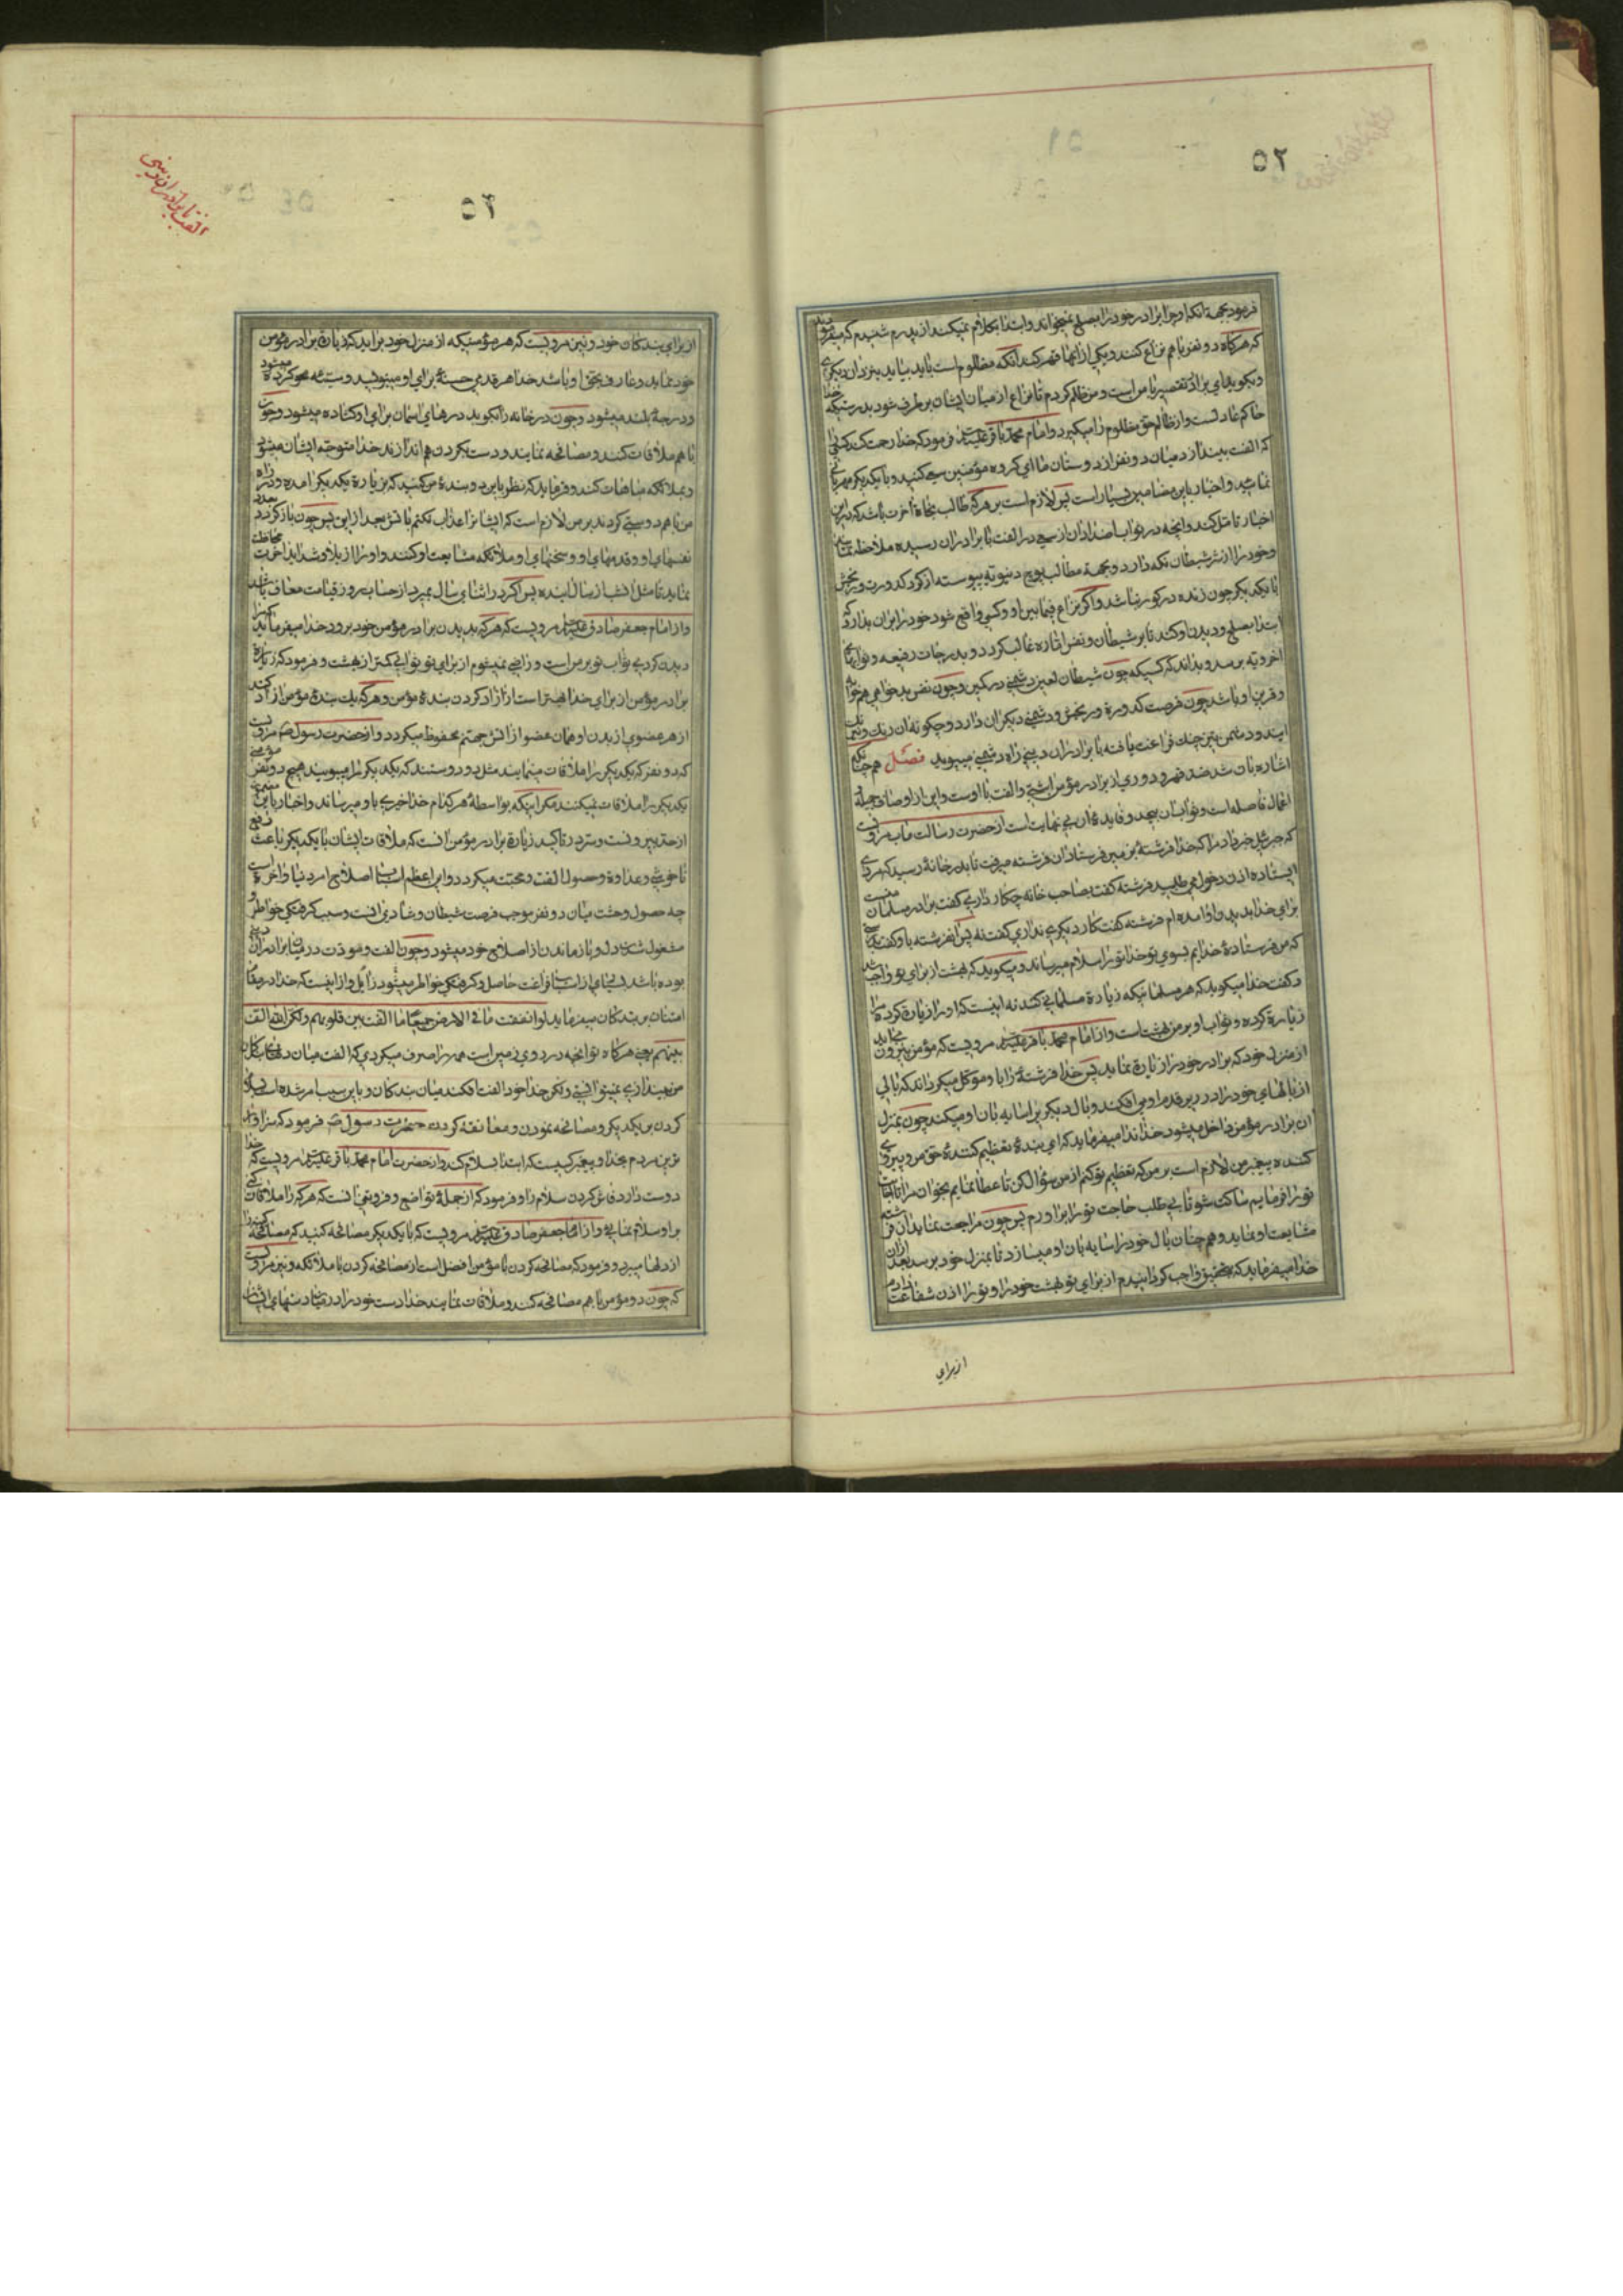 ۵۲
فرمود بجهة انکه او چرا برادر خود را بصلح نمیخواند و ابتدا بکلام نمیکند از پدرم شنیدم که میفرمود
که هرکاه دو نفر با هم نزاع کنند و یکی از انها قهر کند انکه مظلوم است باید بیاید بنزد ان دیکری
و بکوید ای برادر تقصیر با من است و من ظلم کردم تا نزاع از میان ایشان بر طرف شود بدرستیکه خدا
حاکم عادلست و از ظالم حق مظلوم را میکیرد و امام محمد باقر علیه السلام فرمود که خدا رحمت کند کسی را
که الفت بیندازد میان دو نفر از دوستان ما ای کروه مؤمنین سعی کنید و با یکدیکر مهربانی
نمائید و اخبار باین مضامین بسیار است پس لازم است بر هرکه طالب نجاة اخرت باشد که در این
اخبار تامل کند و انچه در ثواب اضداد ان از سعی در الفت با برادران رسیده ملاحظه نماید
و خود را از شر شیطان نکه دارد و بجهة مطالب پوچ دنیویه پیوسته از کرد کدورت و رنجش
با یکدیکر چون زنده در کور نباشد و اکر نزاع فیمابین او و کسی واقع شود خود را بران بدارد که
ابتدا بصلح و دیدن او کند تا بر شیطان و نفس اماره غالب کردد و بدرجات رفیعه و ثوابهای
اخرویه برسد و بداند که کسیکه چون شیطان لعین دشمنی در کمین و چون نفس بد خواهی همخوابه
و قرین او باشد چون فرصت کدورة و رنجش و دشمنی دیکران دارد و چکونه ان
ایندو دشمن چنک فراغت یافته با برادران دینی راه دشمنی میپوید فصل همچنانکه
اشاره بان شد ضد قهر و دوری از برادر مؤمن اشتی و الفت با اوست و این از اوصاف جمیله و
اعمال فاضله است و ثواب ان بیحد و فایده ان بی نهایت است از حضرت رسالت ماب مرویست
که جبرئیل خبر داد مرا که خدا فرشتۀ بزمین فرستاد ان فرشته میرفت تا بدر خانۀ رسید که مردی
ایستاده اذن دخول می طلبید فرشته کفت بصاحب خانه چکار داری کفت برادر مسلمان منست
برای خدا بدیدن او امده ام فرشته کفت کار دیکری نداری کفت نه پس انفرشته باو کفت بدرستی
که من فرستادۀ خدایم بسوی تو خدا تورا سلام میرساند و میکوید که بهشت از برای تو واجب شد
و کفت خدا میکوید که هر مسلمانیکه زیارة مسلمانی کند نه اینست که او را زیارة کرده مرا
زیارة کرده و ثواب او بر من بهشت است و از امام محمد باقر علیه السلام مرویست که مؤمن بیرون میاید
از منزل خود که برادر خود را زیارة نماید پس خدا فرشتۀ را باو موکل میکرداند که بالی
از بالهای خود را در زیر قدم او می افکند و بال دیکر بر او سایه بان او میکند چون بمنزل
ان برادر مؤمن داخل میشود خدا ندا میفرماید که ای بندۀ تعظیم کنندۀ حق من و پیروی
کننده پیغمبر من لازم است بر من که تعظیم تو کنم از من سؤال کن تا عطا نمایم بخوان مرا تا اجابت
تورا فرمایم ساکت شو تا بی طلب حاجت تورا براورم پس چون مراجعت نماید ان فرشته
مشایعت او نماید و همچنان بال خود را سایه بان او میسازد تا بمنزل خود برسد بعد از ان
خدا میفرماید که بتحقیق واجب کردانیدم از برای تو بهشت خود را و تورا اذن شفاعت دادم
از برای
۵۳
از برای بندکان خود و نیز مرویست که هر مؤمنیکه از منزل خود براید که زیارة برادر مؤمن
خود نماید و عارف بحق او باشد خدا هر قدمی حسنۀ برای او مینویسد و سیئه محو کرده میشود
و درجۀ بلند میشود و چون در خانه را بکوبد درهای اسمان برای او کشاده میشود و چون
با هم ملاقات کنند و مصافحه نمایند و دست بکردن هم اندازند خدا متوجه ایشان میشود
و بملائکه مباهات کند و فرماید که نظر باین دو بندۀ من کنید که بزیارة یکدیکر امده و در راه
من با هم دوستی کردند بر من لازم است که ایشانرا عذاب نکنم باتش بعد از این پس چون باز کردد بعدد
نفسهای او و قدمهای او و سخنهای او ملائکه مشایعت او کنند و اورا از بلا و شداید اخرت محافظت
نمایند تا مثل انشب از سال اینده پس اکر در اثنای سال بمیرد از حساب روز قیامت معاف باشد
و از امام جعفر صادق علیه السلام مرویست که هرکه بدیدن برادر مؤمن خود برود خدا میفرماید که مرا
دیدن کردی ثواب تو بر من است و راضی نمیشوم از برای تو ثوابی کمتر از بهشت و فرمود که زیارة
برادر مؤمن از برای خدا بهتر است از ازاد کردن بندۀ مؤمن و هرکه یک بندۀ مؤمن ازاد کند
از هر عضوی از بدن او همان عضو از اتش جهنم محفوظ میکردد و از حضرت رسول ص مرویست
که دو نفر که یکدیکر را ملاقات مینمایند مثل دو دستند که یکدیکر را میشویند هیچ دو نفر مؤمنی
یکدیکر را ملاقات نمیکنند مکر اینکه بواسطۀ هر کدام خدا خیری باو میرساند و اخبار باین
از حد بیرونست و سر در تاکید زیارة برادر مؤمن انست که ملاقات ایشان با یکدیکر باعث رفع
ناخوشی و عداوة و حصول الفت و محبت میکردد و این اعظم اسباب اصلاح امر دنیا و اخرة است
چه حصول وحشت میان دو نفر موجب فرصت شیطان و شادی انست و سبب کرفتکی خواطر و
مشغول شدن دل و باز ماندن از اصلاح خود میشود و چون الفت و مودت در میان برادران دینی
بوده باشد بسیاری از اسباب فراغت حاصل و کرفتکی خواطر میشود زایل و از اینست که خدا در مقام
امتنان بر بندکان میفرماید لو انفقت ما فی الارض جمیعا ما الفت بین قلوبهم ولکن الله الف
بینهم یعنی هرکاه تو انچه در روی زمین است همه را صرف میکردی که الفت میان دلهای
من بیندازی نمیتوانستی ولکن خدا خود الفت افکند میان بندکان و باین سبب امر شده است بسلام
کردن بر یکدیکر و مصافحه نمودن و معانقه کردن حضرت رسول ص فرمود که سزاوار
ترین مردم بخدا و پیغمبر کسیست که ابتدا بسلام کند و از حضرت امام محمد باقر علیه السلام مرویست که خدا
دوست دارد فاش کردن سلام را و فرمود که از جملۀ تواضع و فروتنی انست که هرکه را ملاقات کنی
بر او سلام نمایی و از امام جعفر صادق علیه السلام مرویست که با یکدیکر مصافحه کنید که مصافحه کینه را
از دلها میبرد و فرمود که مصافحه کردن با مؤمن افضل است از مصافحه کردن با ملائکه و نیز مرویست
که چون دو مؤمن با هم مصافحه کنند و ملاقات نمایند خدا دست خود را در میان دستهای ایشان